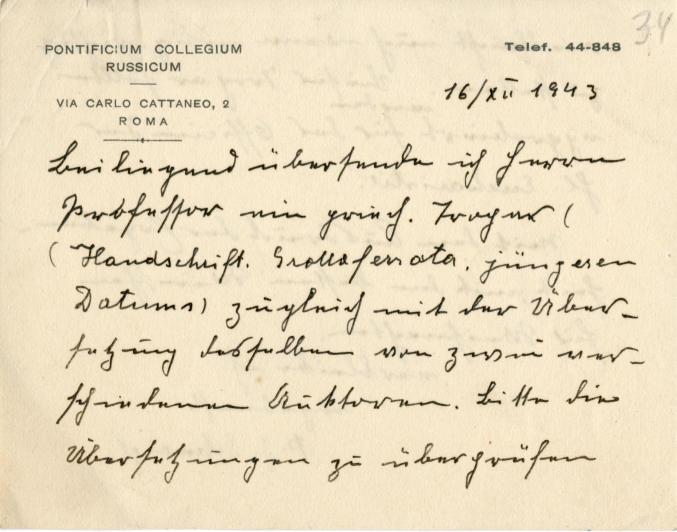 34
PONTIFICIUM COLLEGIUM
RUSSICUM
Telef. 44-848
VIA CARLO CATTANEO, 2
ROMA
16/XII 1943
Beiliegend übersende ich Herrn
Professor ein griech. Tropar (
(Handschrift. Grottaferrata, jüngeren
Datums) zugleich mit der Über-
setzung desselben von zwei ver-
schiedenen Auktoren. Bitte die
Übersetzungen zu überprüfen